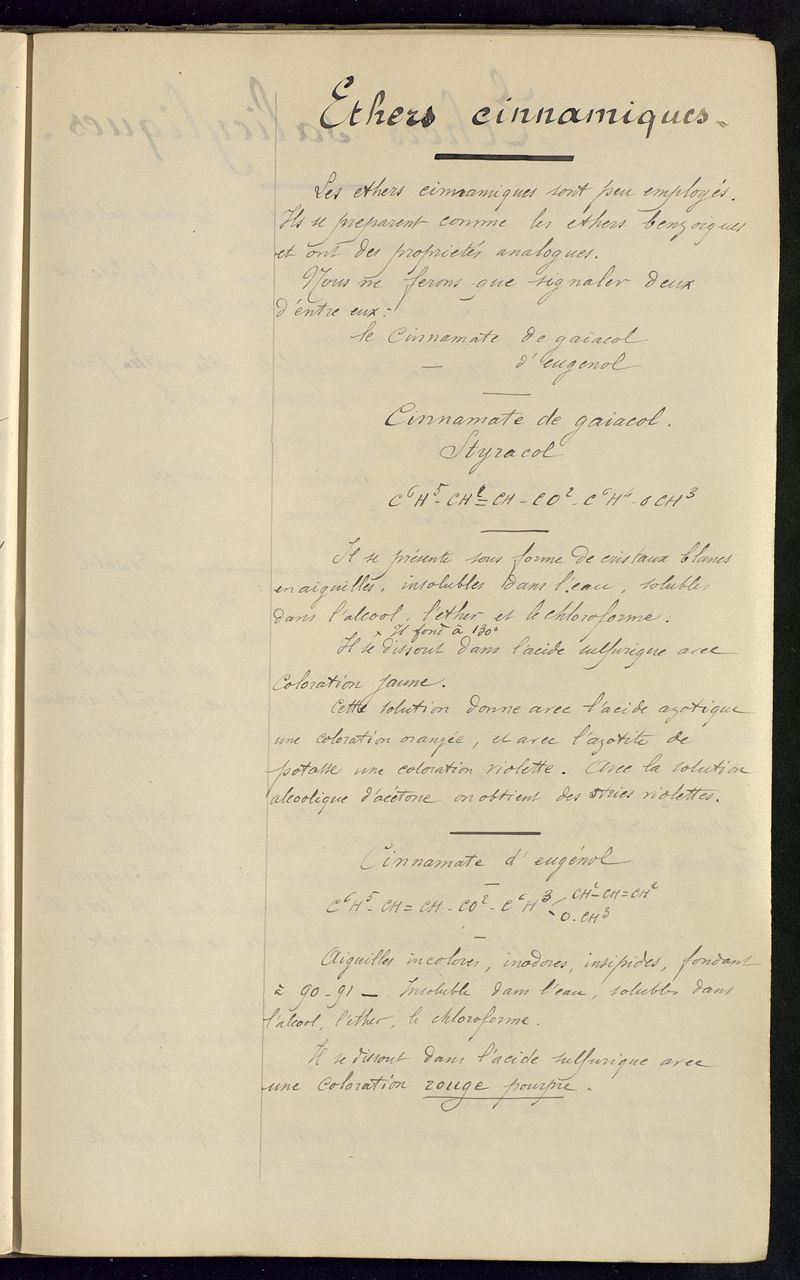 Ethers cinnamiques.
Les ethers cinnamiques sont peu employés.
Ils se preparent comme les ethers benzoiques
et ont des proprietés analogues.
Nous ne ferons que signaler deux
d'entre eux :
le Cinnamate de gaiacol
— d'eugenol
Cinnamate de gaiacol.
Styracol
C⁶H⁵-CH=CH-CO²-C⁶H⁴-OCH³
Il se présente sous forme de cristaux blancs
en aiguilles, insolubles dans l'eau, solubles
dans l'alcool, l'ether et le chloroforme.
x Il fond à 130°
Il se dissout dans l'acide sulfurique avec
coloration jaune.
Cette solution donne avec l'acide azotique
une coloration orangée, et avec l'azotite de
potasse une coloration violette. Avec la solution
alcoolique d'acétone on obtient des stries violettes.
Cinnamate d'eugénol
C⁶H⁵-CH=CH-CO²-C⁶H³
CH²-CH=CH²
O.CH³
Aiguilles incolores, inodores, insipides, fondant
à 90-91 —. Insoluble dans l'eau, solubles dans
l'alcool, l'ether, le chloroforme.
Il se dissout dans l'acide sulfurique avec
une coloration rouge pourpre.